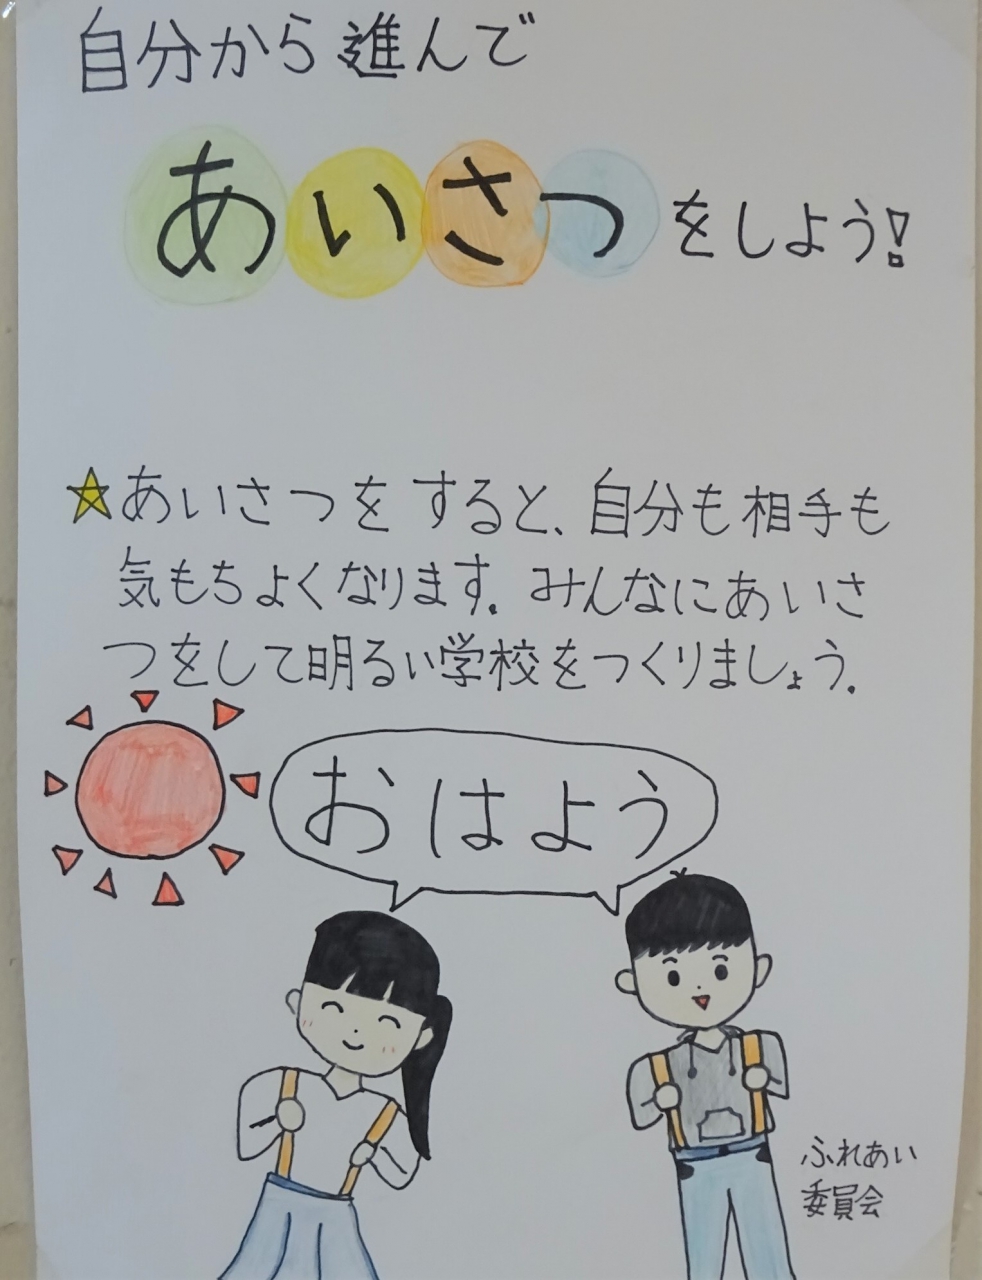 自分から進んで
あいさつをしよう!
★あいさつをすると、自分も相手も
気もちよくなります。みんなにあいさ
つをして明るい学校をつくりましょう。
おはよう
ふれあい
委員会